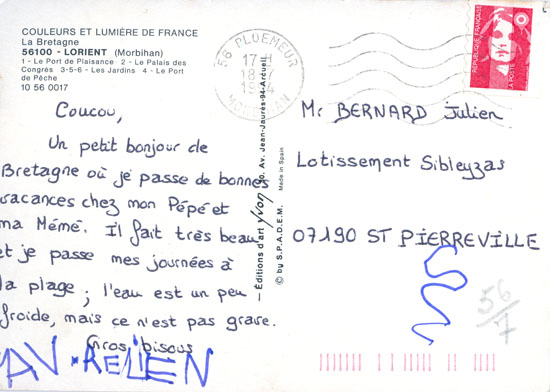 COULEURS ET LUMIÈRE DE FRANCE
La Bretagne
56100 - LORIENT (Morbihan)
1 - Le Port de Plaisance 2 - Le Palais des
Congrès 3-5-6 - Les Jardins 4 - Le Port
de Pêche
10 56 0017
Coucou,
Un petit bonjour de
Bretagne où je passe de bonnes
vacances chez mon Pépé et
ma Mémé. Il fait très beau
et je passe mes journées à
la plage ; l'eau est un peu
froide, mais ce n'est pas grave.
Gros bisous
AV-RELIEN
56 PLOEMEUR
MORBIHAN
Editions d'art yvon 30, Av. Jean-Jaurès-94-Arcueil
© by S.P.A.D.E.M. Made in Spain
REPUBLIQUE FRANÇAISE
LA POSTE
Mr BERNARD Julien
Lotissement Sibleyzas
07190 ST PIERREVILLE
56/7